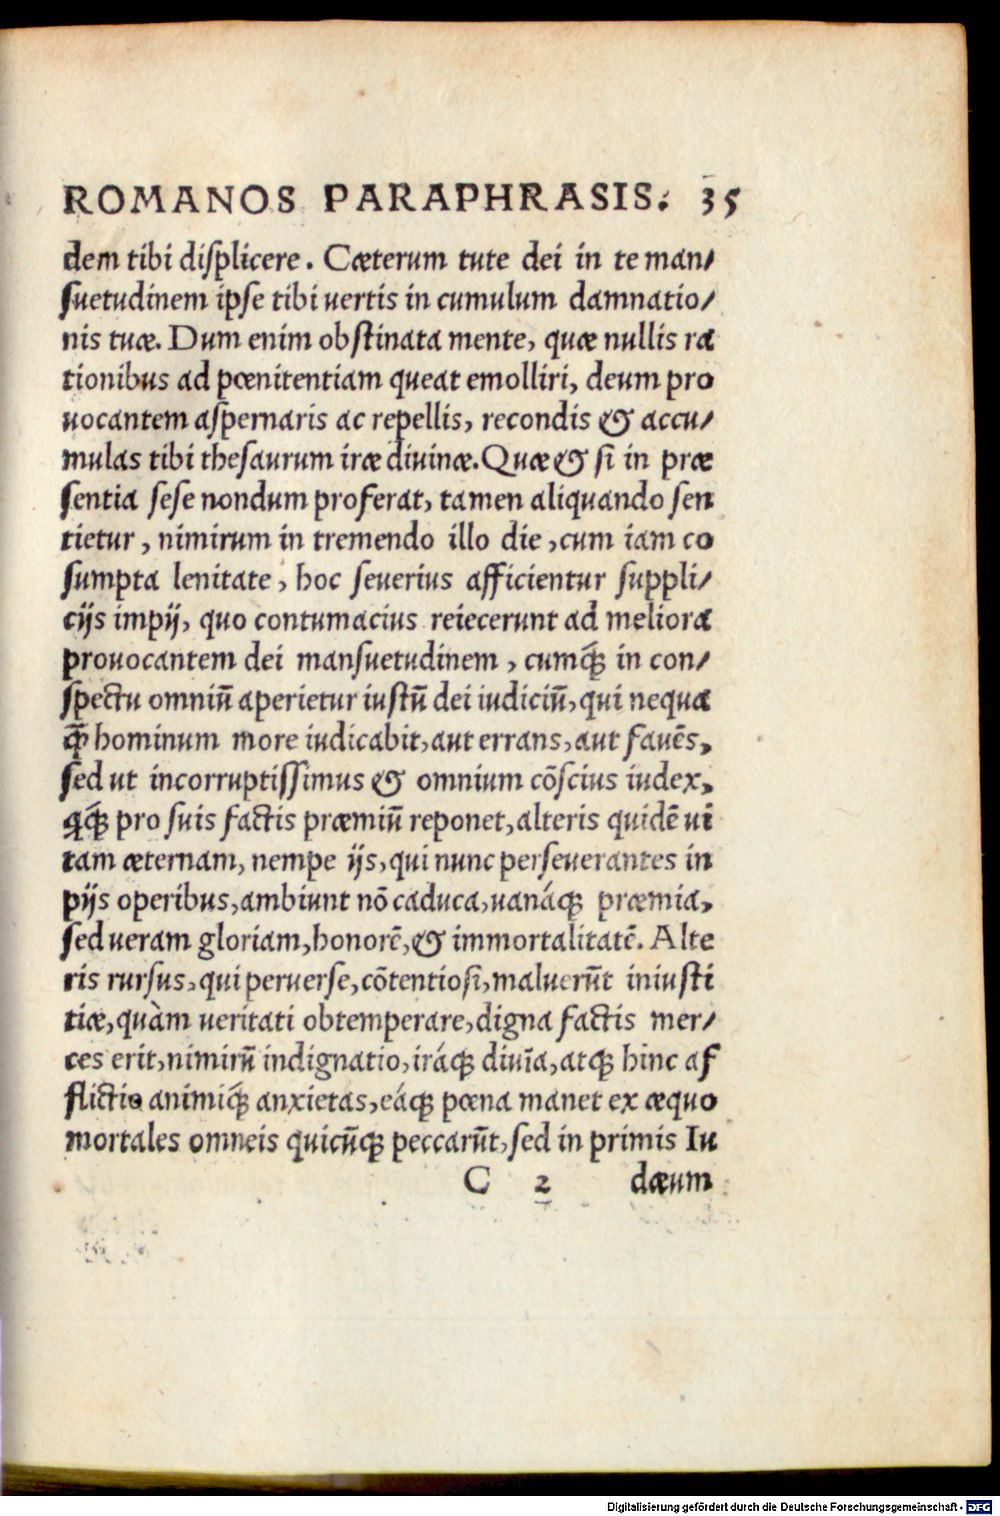 ROMANOS PARAPHRASIS. 35
dem tibi displicere. Cæterum tute dei in te man/
suetudinem ipse tibi uertis in cumulum damnatio/
nis tuæ. Dum enim obstinata mente, quæ nullis ra
tionibus ad pœnitentiam queat emolliri, deum pro
uocantem aspernaris ac repellis, recondis & accu/
mulas tibi thesaurum iræ diuinæ. Quæ & si in præ
sentia sese nondum proferat, tamen aliquando sen
tietur, nimirum in tremendo illo die, cum iam co
sumpta lenitate, hoc seuerius afficientur suppli/
cijs impij, quo contumacius reiecerunt ad meliora
prouocantem dei mansuetudinem, cumq́ꝫ in con/
spectu omniũ aperietur iustũ dei iudiciũ, qui nequa
q̃ hominum more iudicabit, aut errans, aut fauẽs,
sed ut incorruptissimus & omnium cõscius iudex,
ꝗꝫ pro suis factis præmiũ reponet, alteris quidẽ ui
tam æternam, nempe ijs, qui nunc perseuerantes in
pijs operibus, ambiunt nõ caduca, uanáqꝫ præmia,
sed ueram gloriam, honorẽ, & immortalitatẽ. Alte
ris rursus, qui peruerse, cõtentiosi, maluerũt iniusti
tiæ, quàm ueritati obtemperare, digna factis mer/
ces erit, nimirũ indignatio, iráqꝫ diuĩa, atqꝫ hinc af
flictio animiq́ꝫ anxietas, eáqꝫ pœna manet ex æquo
mortales omneis quicũqꝫ peccarũt, sed in primis Iu
C 2 dæum
Digitalisierung gefördert durch die Deutsche Forschungsgemeinschaft - DFG